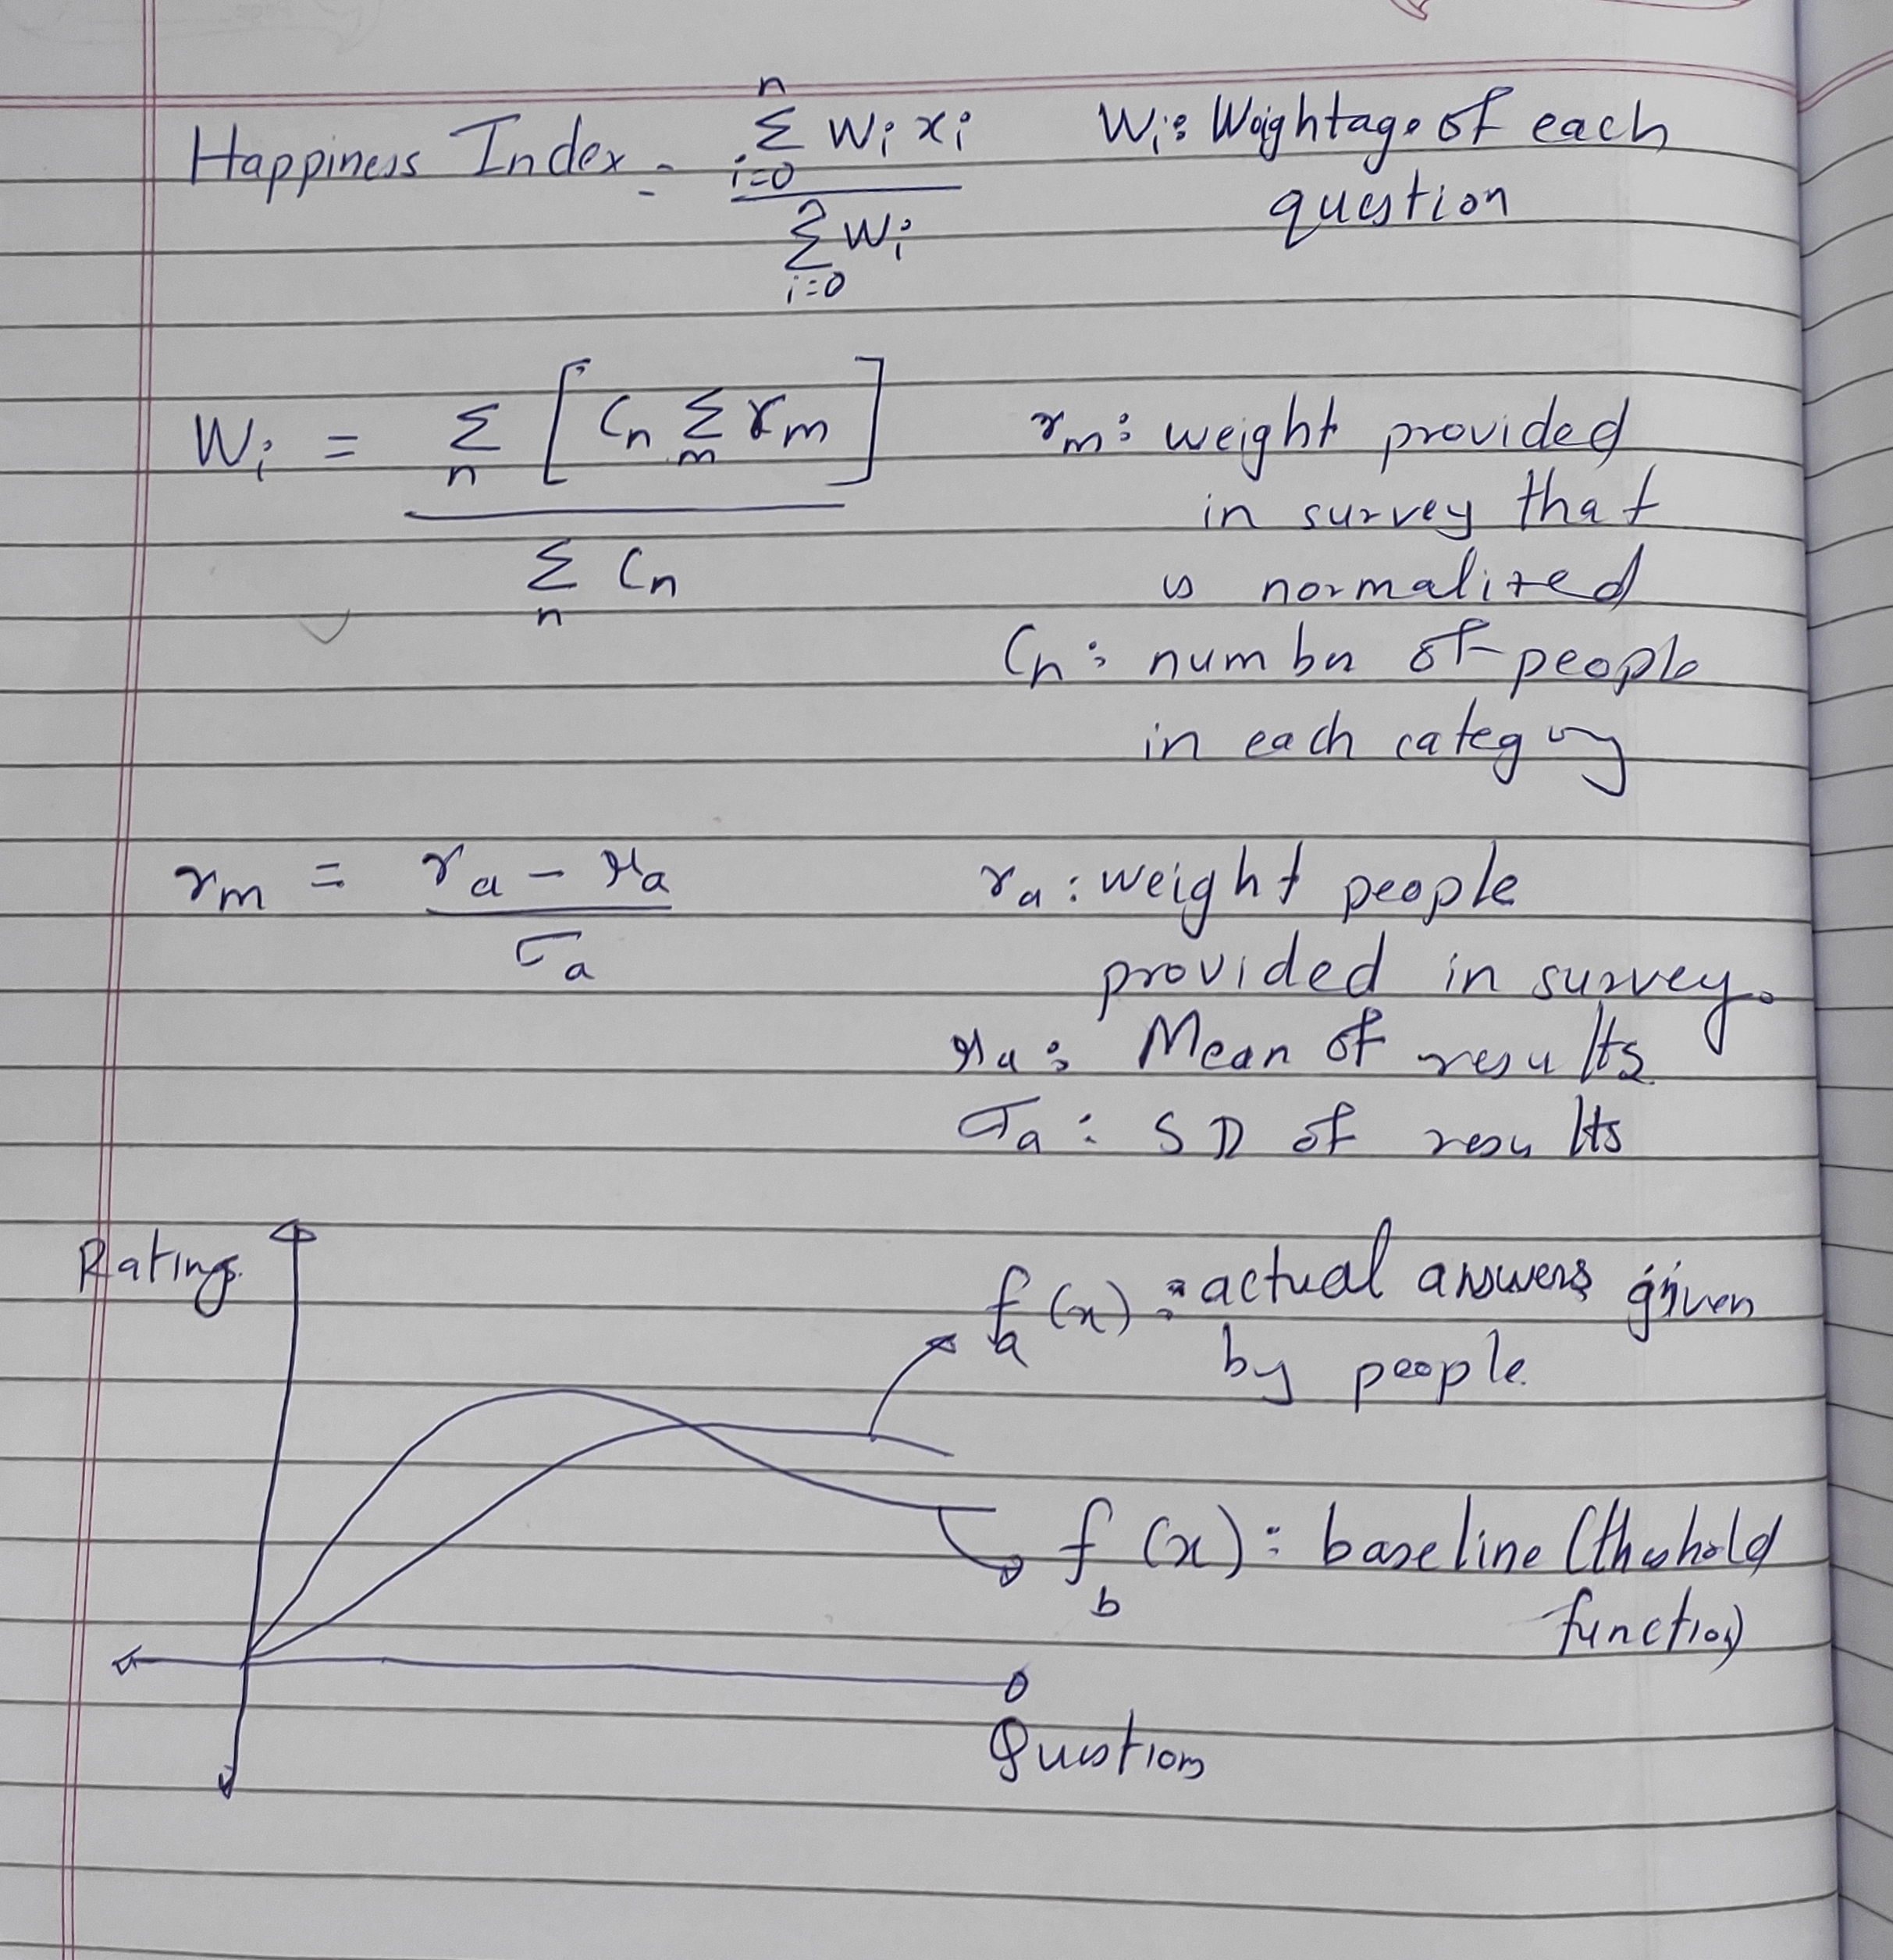 Happiness Index = \frac{\sum_{i=0}^{n} W_i x_i}{\sum_{i=0}^{n} W_i}
W_i: Weightage of each
question
W_i = \frac{\sum_n [C_n \sum_m r_m]}{\sum_n C_n}
r_m: weight provided
in survey that
is normalized
C_n: number of people
in each category
r_m = \frac{r_a - μ_a}{σ_a}
r_a: weight people
provided in survey.
μ_a: Mean of results
σ_a: SD of results
Rating
f_a(x): actual answers given
by people
f_b(x): baseline (threshold
function)
Questions